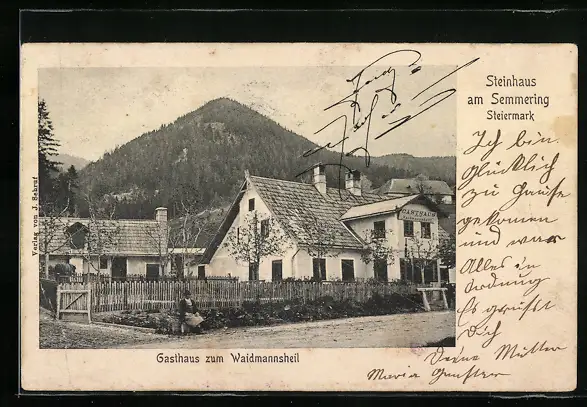 Steinhaus
am Semmering
Steiermark
Verlag von J. Sehruf
GASTHAUS
Ich bin
Glücklich
zu Hause
gekomen
und war
Alles in
Ordnung
Es grüßt
Dich
Deine Mutter
Maria
Gasthaus zum Waidmannsheil